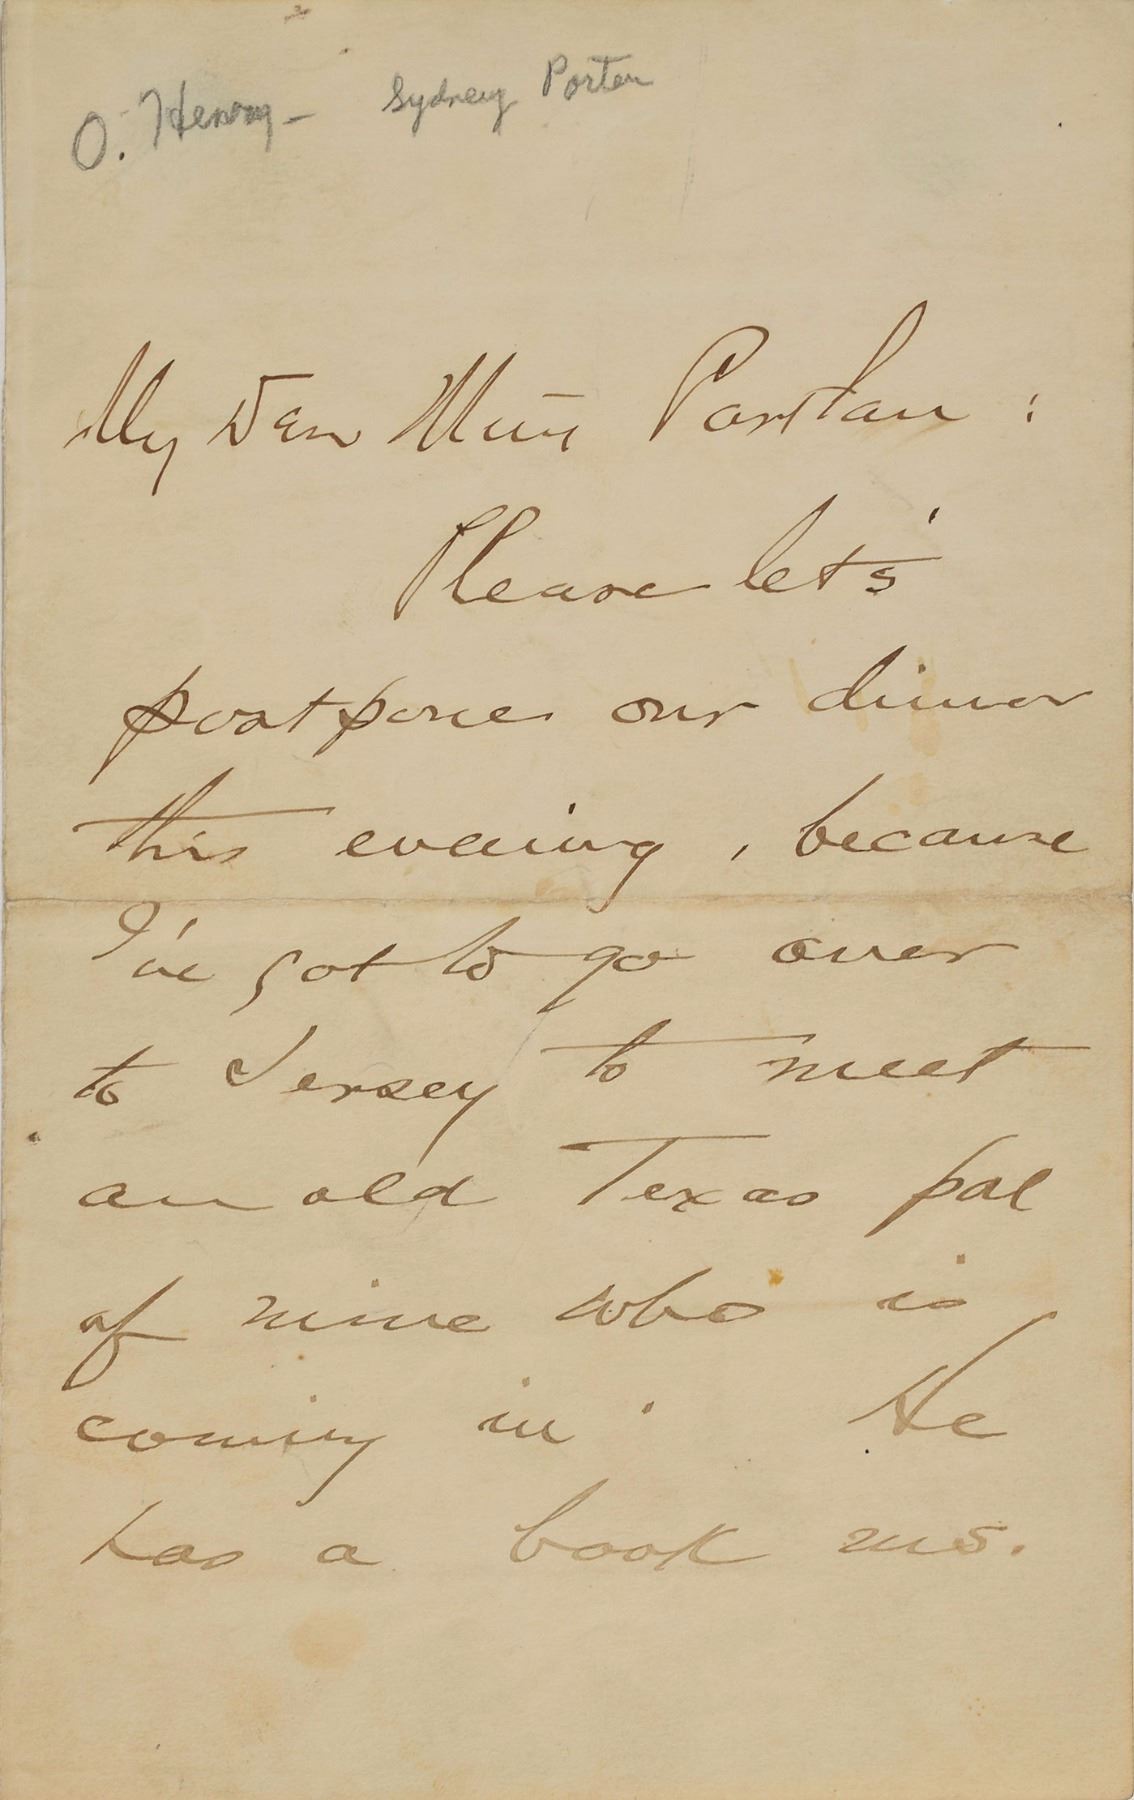 O. Henry – Sydney Porter
My Dear Miss Partlan:
Please let's
postpone our dinner
this evening, because
I've got to go over
to Jersey to meet
an old Texas pal
of mine who is
coming in. He
has a book ms.